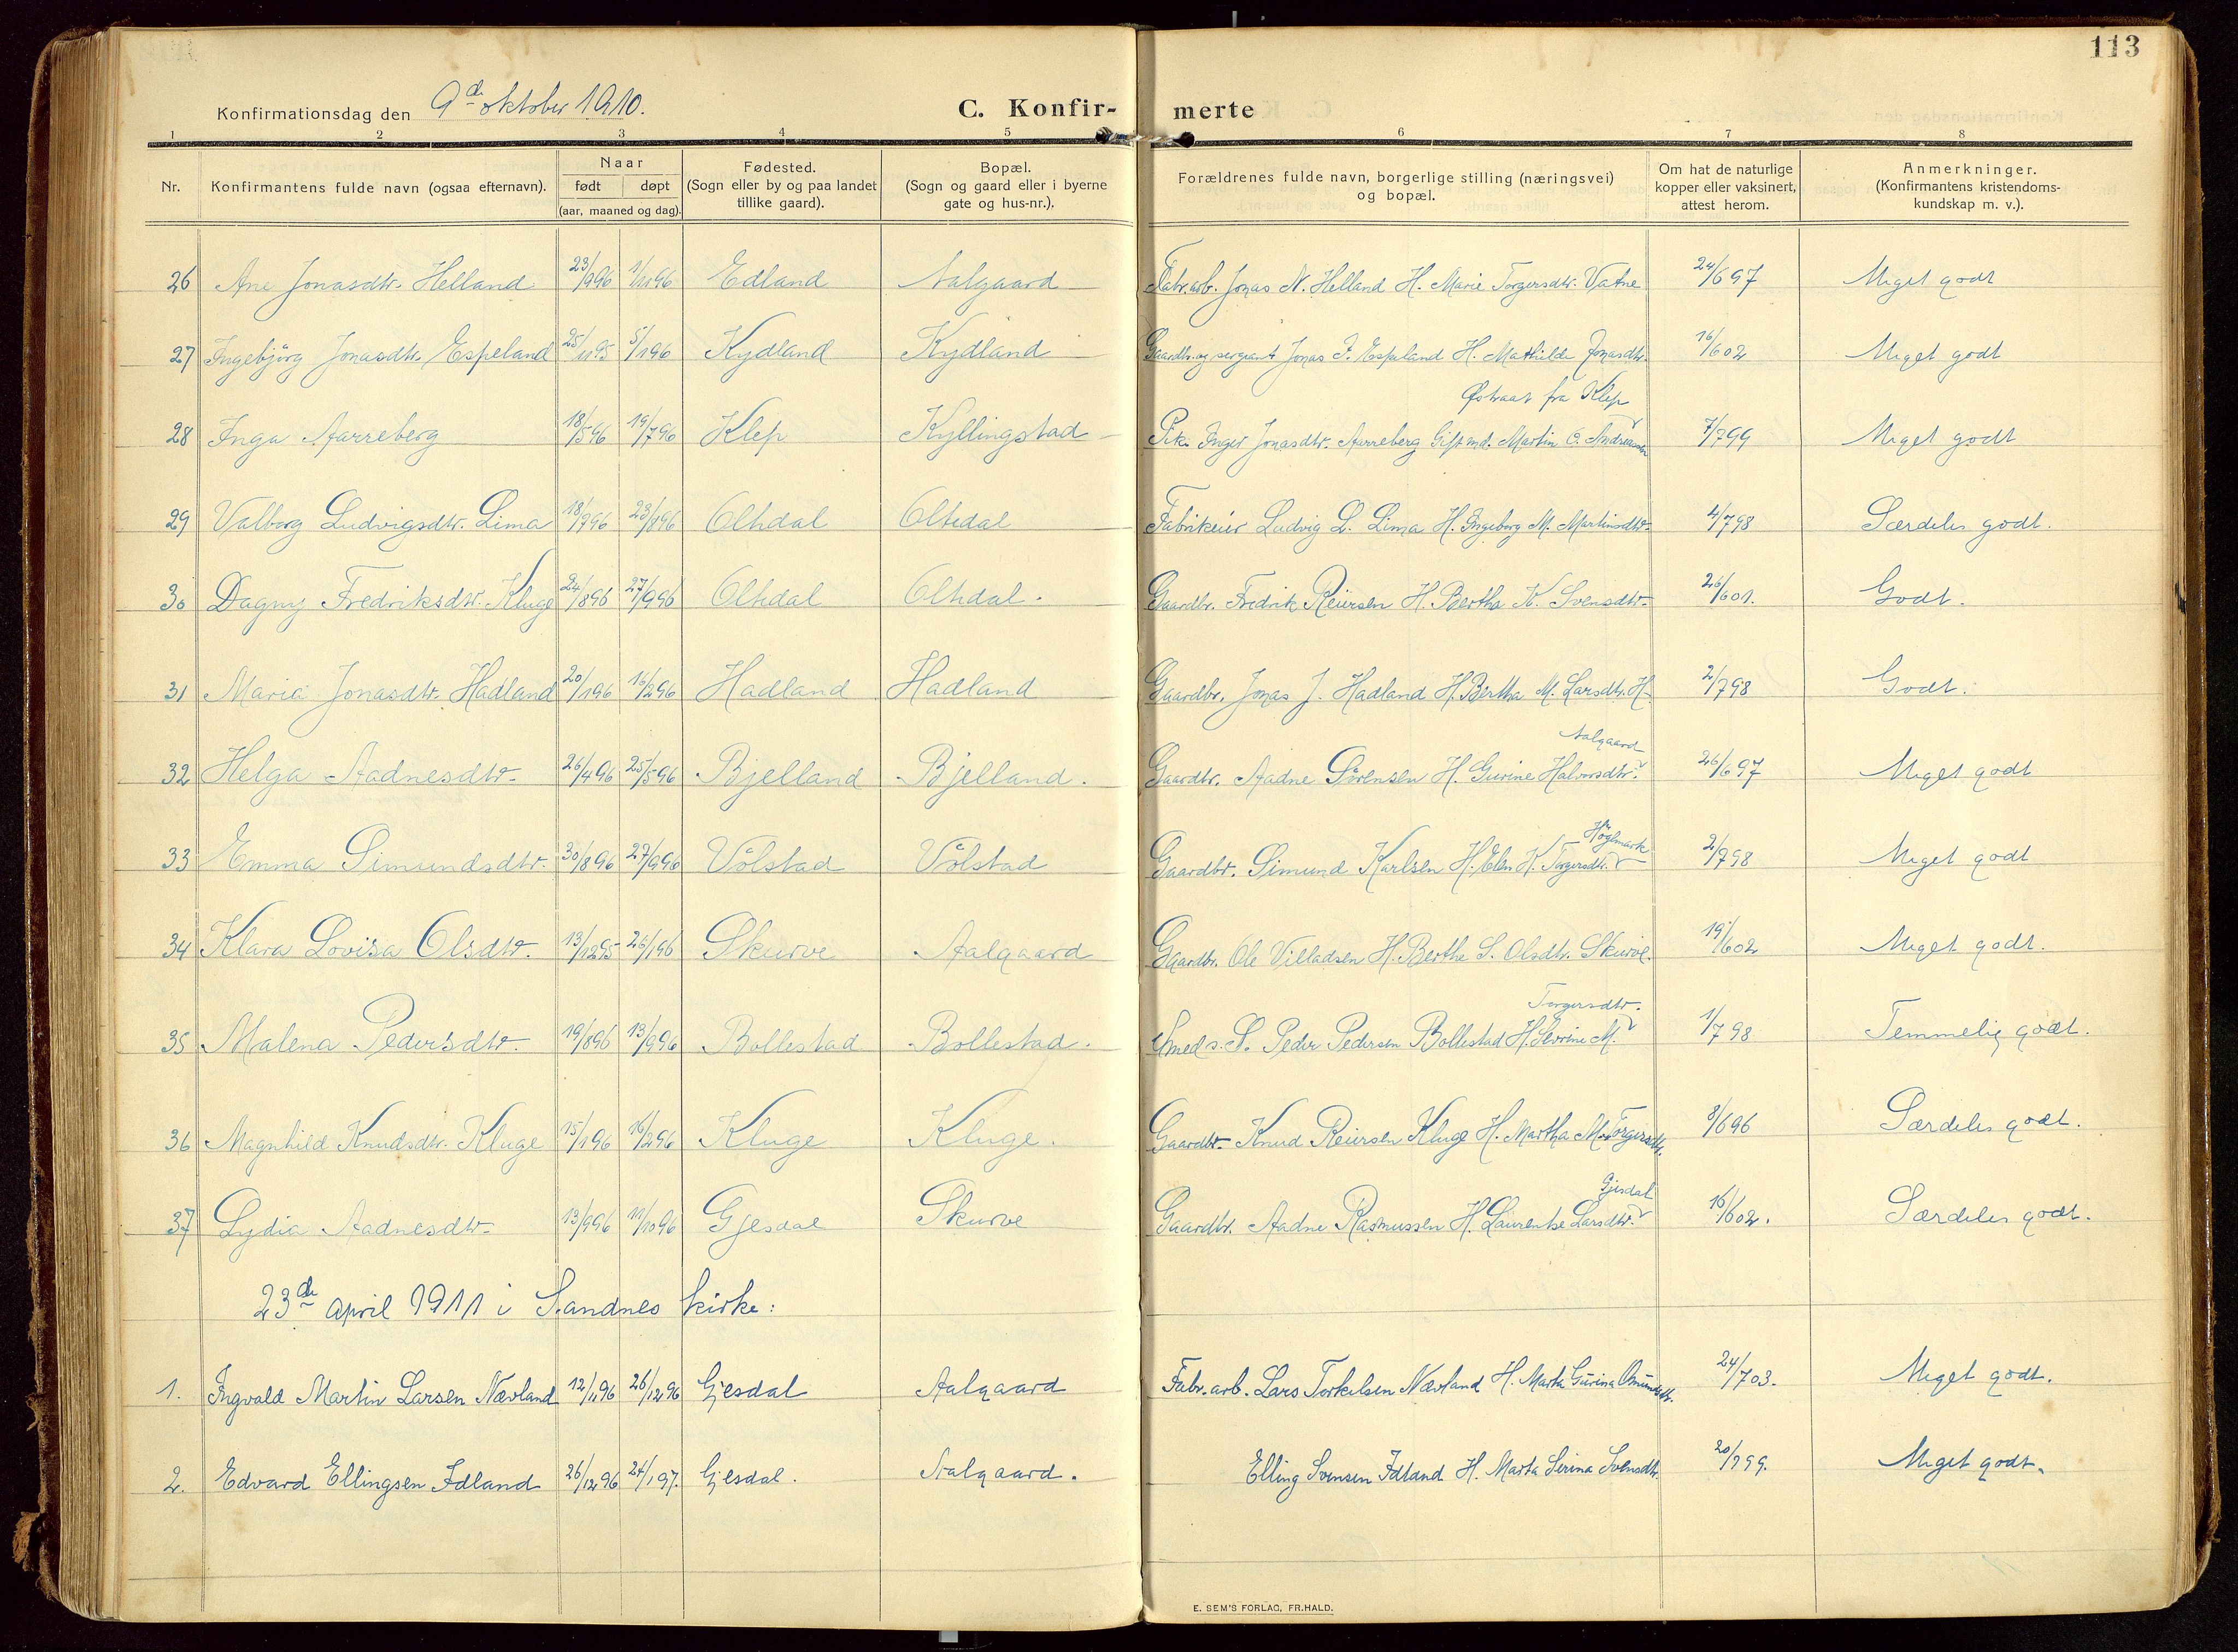 113
Konfirmationsdag den 9de oktober 1910.
C. Konfir- merte
1 2 3 4 5 6 7 8
Nr. Konfirmantens fulde navn (ogsaa efternavn). Naar født døpt (aar, maaned og dag). Fødested. (Sogn eller by og paa landet tillike gaard). Bopæl. (Sogn og gaard eller i byerne gate og hus-nr.). Forældrenes fulde navn, borgerlige stilling (næringsvei) og bopæl. Om hat de naturlige kopper eller vaksinert, attest herom. Anmerkninger. (Konfirmantens kristendoms-kundskap m. v.).
26 Ane Jonasdtr. Helland 23/996 1/1196 Edland Aalgaard Fabr.arb. Jonas N. Helland H. Marie Torgersdtr. Vatne 24/697 Meget godt
27 Ingebjörg Jonasdtr. Espeland 25/1195 5/196 Kydland Kydland Gaardbr. og sergeant Jonas J. Espeland H. Mathilde Jonasdtr. 16/602 Meget godt
Østraat fra Klep
28 Inga Aarreberg 18/596 19/796 Klep Kyllingstad Pik. Inger Jonasdtr. Aarreberg Gift md. Martin O. Andreassen 7/799 Meget godt
29 Valborg Ludvigsdtr. Lima 18/796 23/896 Oltedal Oltedal Fabrikeier Ludvig L. Lima H. Ingeborg M. Martinsdtr. 4/798 Særdeles godt.
30 Dagny Fredriksdtr. Kluge 24/896 27/996 Oltedal Oltedal. Gaardbr. Fredrik Reiersen H. Bertha K. Svensdtr. 26/601. Godt.
31 Maria Jonasdtr. Hadland 20/196 16/296 Hadland Hadland Gaardbr. Jonas J. Hadland H. Bertha M. Larsdtr. H. 2/798 Godt.
Aalgaard
32 Helga Aadnesdtr. 26/496 25/596 Bjelland Bjelland. Gaardbr. Aadne Sörensen H. Gurine Halvorsdtr. 26/697 Meget godt
Höglmark
33 Emma Simundsdtr. 30/896 27/996 Vølstad Vølstad Gaardbr. Simund Karlsen H. Elen K. Torgersdtr. 2/798 Meget godt
34 Klara Lovisa Olsdtr. 13/1295 26/196 Skurve Aalgaard Gaardbr. Ole Villadsen H. Berthe S. Olsdtr. Skurve. 19/602 Meget godt.
Torgersdtr.
35 Malena Pedersdtr. 19/896 13/996 Bollestad Bollestad. Smed s. S. Peder Pedersen Bollestad H. Severine M. 1/798 Temmelig godt.
36 Magnhild Knudsdtr. Kluge 15/196 16/296 Kluge Kluge. Gaardbr. Knud Reiersen Kluge H. Martha M. Torgersdtr. 8/696 Særdeles godt.
Gjesdal
37 Lydia Aadnesdtr. 13/996 11/1096 Gjesdal Skurve Gaardbr. Aadne Rasmussen H. Laurentse Larsdtr. 16/602. Særdeles godt.
23de april 1911 i Sandnes kirke:
1. Ingvald Martin Larsen Nævland 12/1196 26/1296 Gjesdal Aalgaard Fabr.arb. Lars Torkelsen Nævland H. Marta Gurina Omundsdtr. 24/703. Meget godt.
2. Edvard Ellingsen Idland 26/1296 24/197. Gjesdal. Aalgaard. Elling Svensen Idland H. Marta Serina Svensdtr. 20/799. Meget godt.
E. SEM'S FORLAG, FR.HALD.